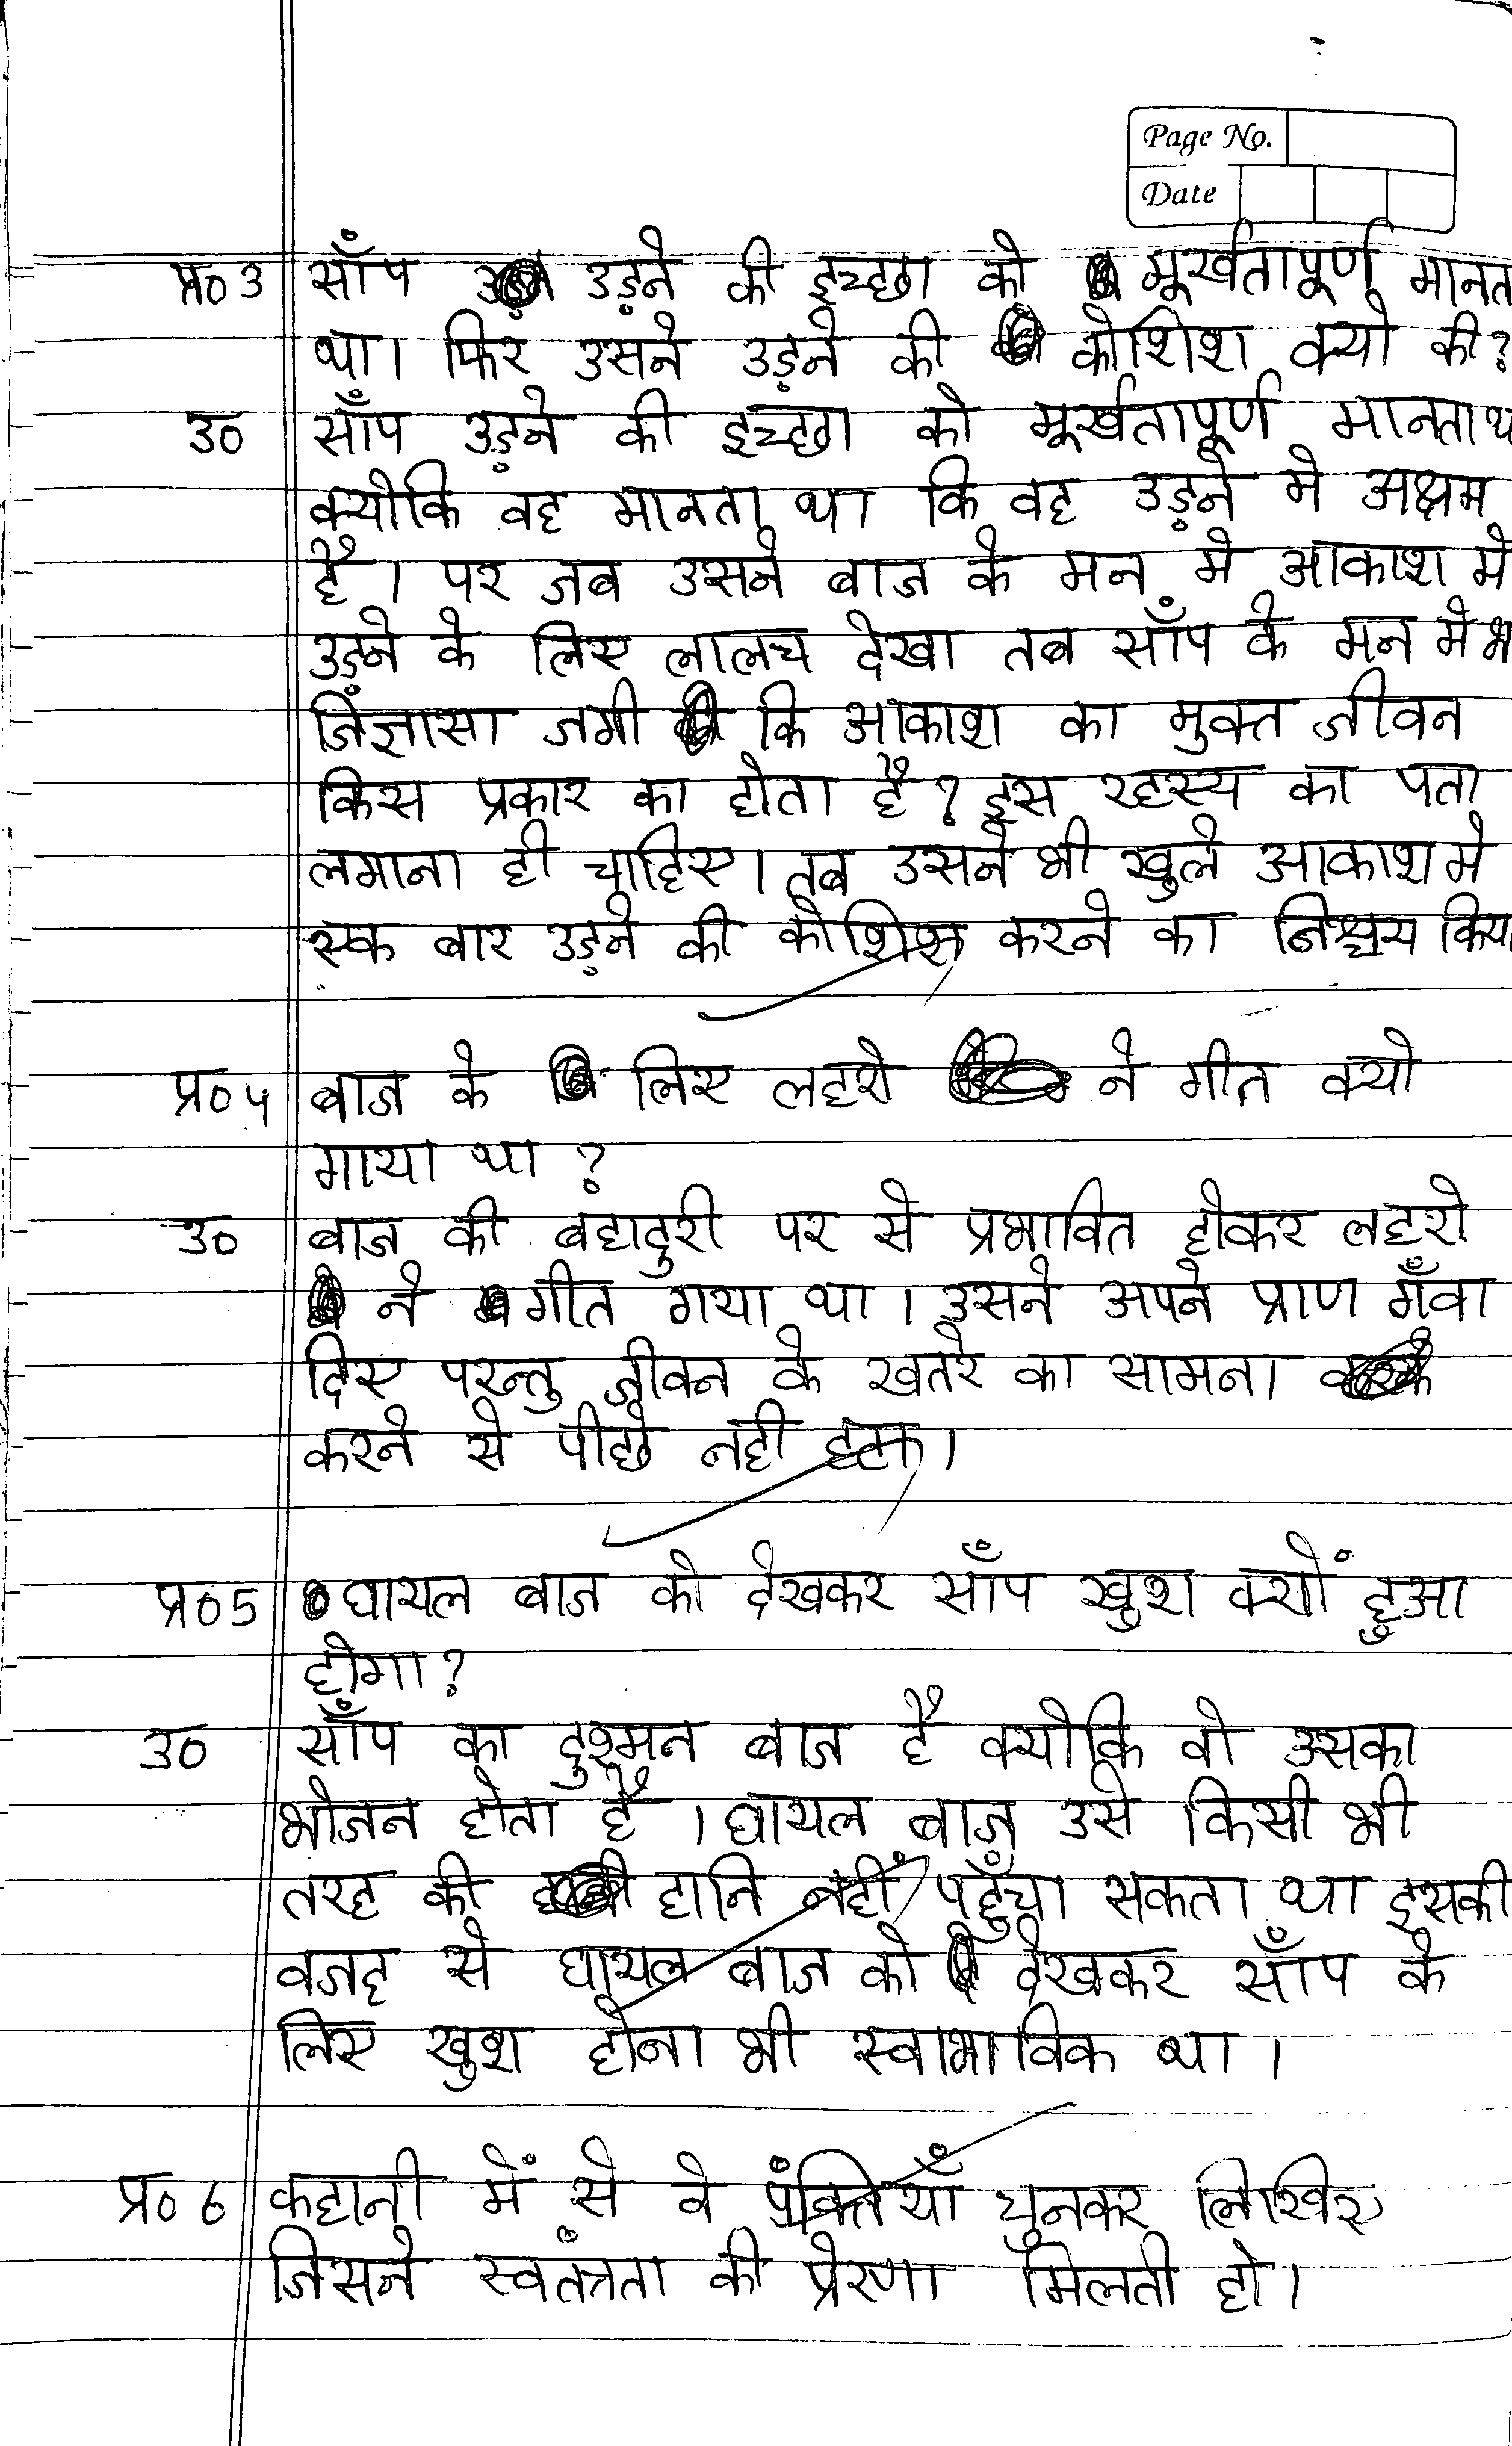 Page No.
Date
प्र० 3 साँप उड़ने की इच्छा को मूर्खतापूर्ण मानत
था। फिर उसने उड़ने की कोशिश क्यो की?
उ० साँप उड़ने की इच्छा को मूर्खतापूर्ण मानता थ
क्योकि वह मानता था कि वह उड़ने मे अक्षम
है। पर जब उसने बाज के मन मे आकाश मे
उड़ने के लिए लालच देखा तब साँप के मन मे भ
जिज्ञासा जगी कि आकाश का मुक्त जीवन
किस प्रकार का होता है? इस रहस्य का पता
लगाना ही चाहिए। तब उसने भी खुले आकाश मे
एक बार उड़ने की कोशिश करने का निश्चय किया
प्र० 4 बाज के लिए लहरो ने गीत क्यो
गाया था ?
उ० बाज की बहादुरी पर से प्रभावित होकर लहरो
ने गीत गया था। उसने अपने प्राण गँवा
दिए परन्तु जीवन के खतरे का सामना
करने से पीछे नही हटा।
प्र० 5 घायल बाज को देखकर साँप खुश क्यों हुआ
होगा?
उ० साँप का दुश्मन बाज है क्योकि वो उसका
भोजन होता है। घायल बाज उसे किसी भी
तरह की हानि नहीं पहुँचा सकता था इसकी
वजह से घायल बाज को देखकर साँप के
लिए खुश होना भी स्वाभाविक था।
प्र० 6 कहानी में से वे पंक्तियाँ चुनकर लिखिए
जिसने स्वतंत्रता की प्रेरणा मिलती हो।